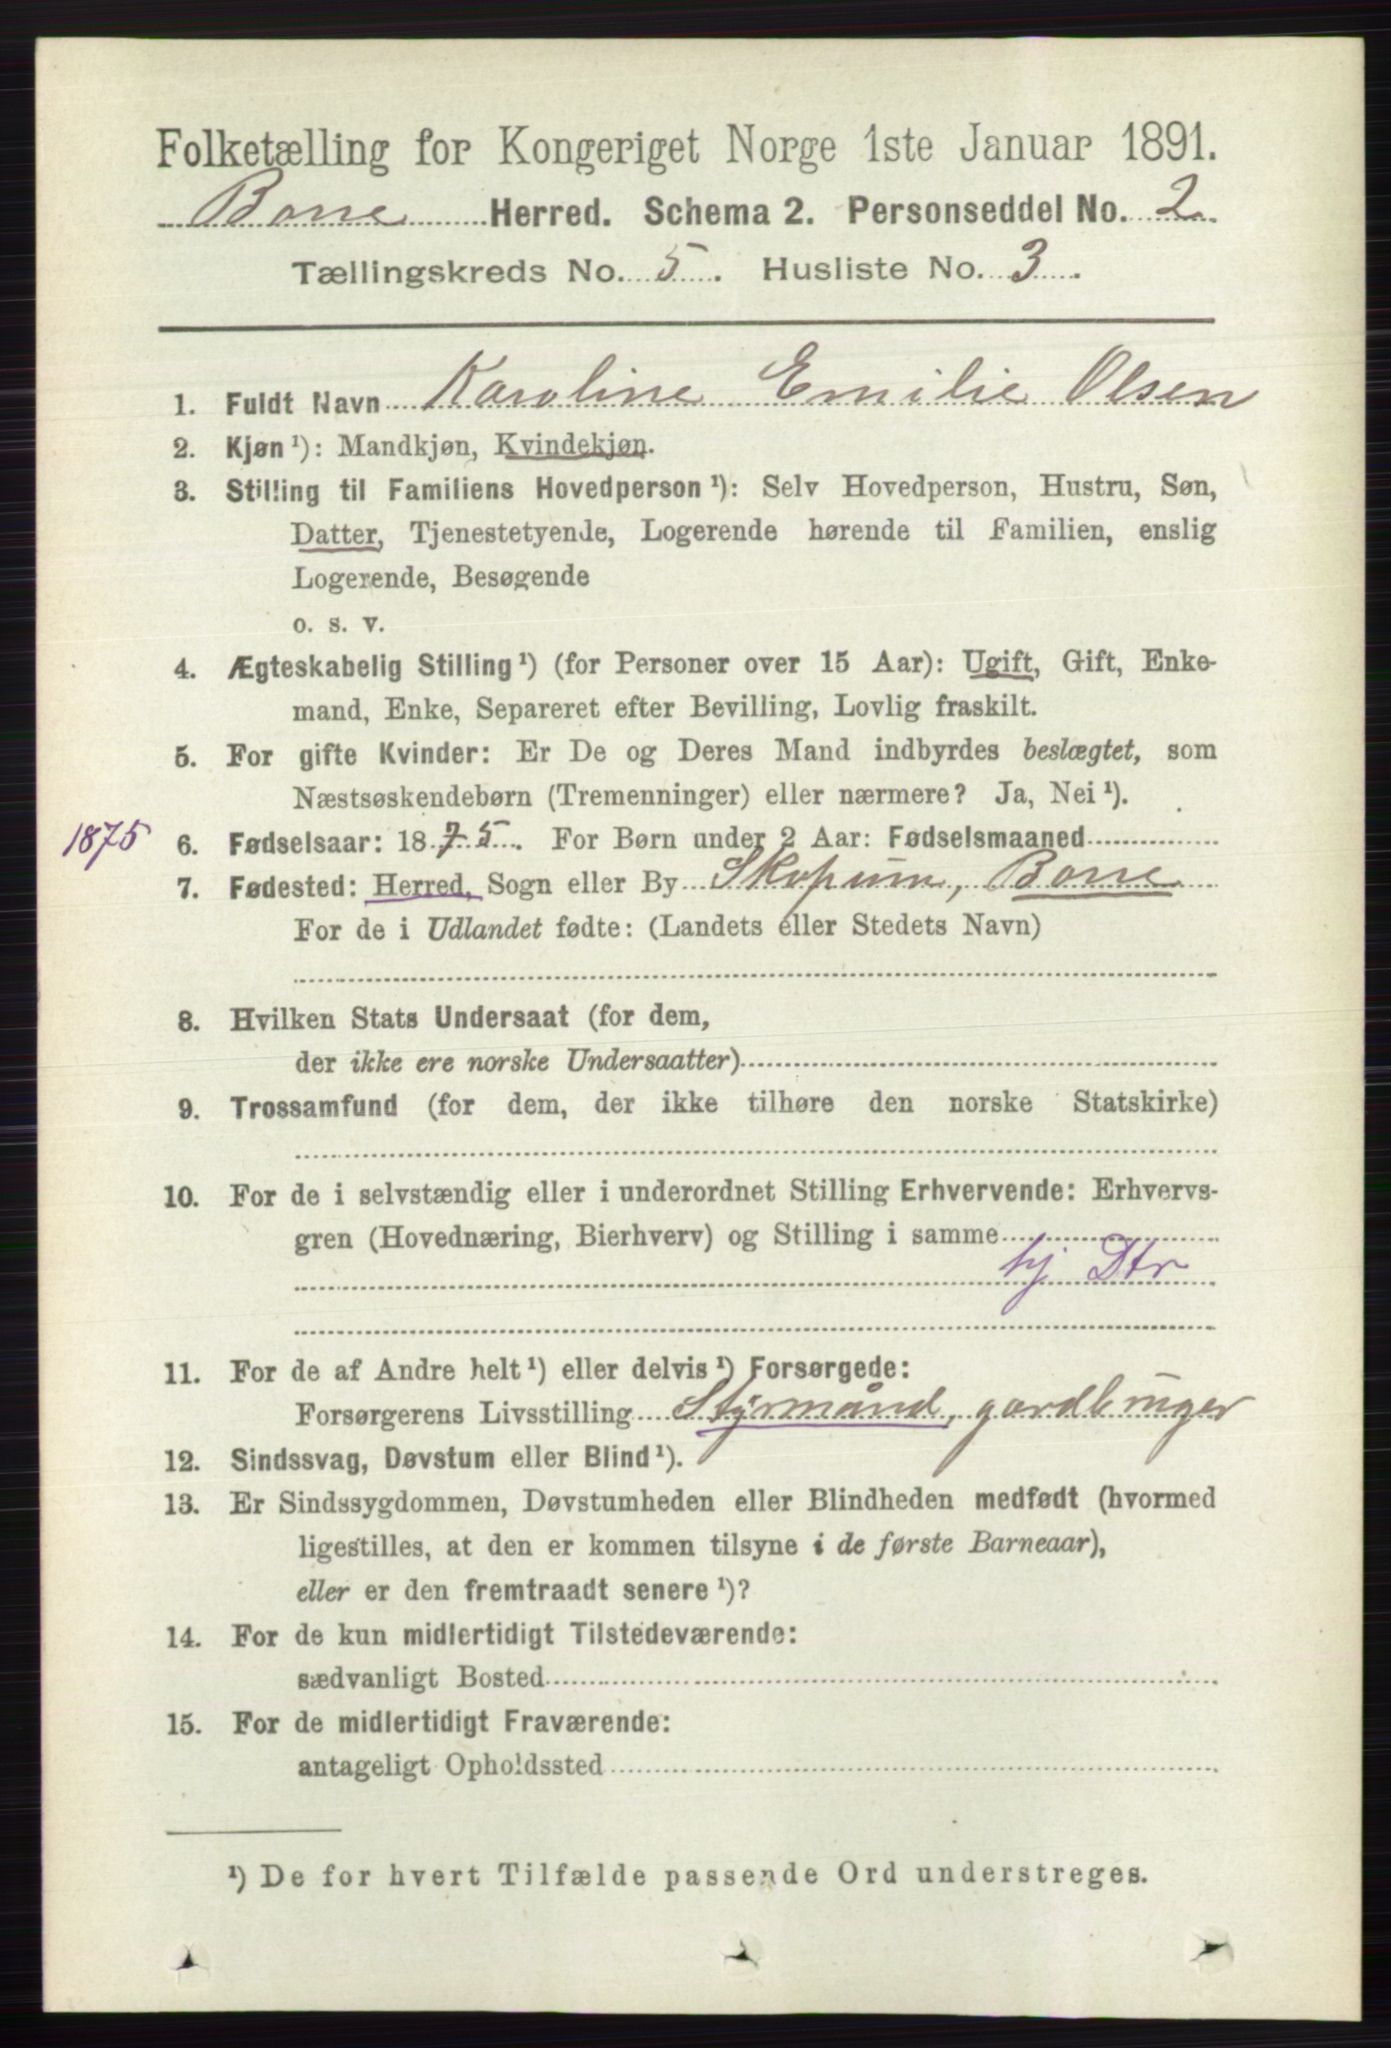 Folketælling for Kongeriget Norge 1ste Januar 1891.
Borre Herred. Schema 2. Personseddel No. 2
Tællingskreds No. 5. Husliste No. 3.
1. Fuldt Navn Karoline Emilie Olsen
2. Kjøn¹): Mandkjøn, Kvindekjøn.
3. Stilling til Familiens Hovedperson¹): Selv Hovedperson, Hustru, Søn,
Datter, Tjenestetyende, Logerende hørende til Familien, enslig
Logerende, Besøgende
o. s. v.
4. Ægteskabelig Stilling¹) (for Personer over 15 Aar): Ugift, Gift, Enke-
mand, Enke, Separeret efter Bevilling, Lovlig fraskilt.
5. For gifte Kvinder: Er De og Deres Mand indbyrdes beslægtet, som
Næstsøskendebørn (Tremenninger) eller nærmere? Ja, Nei¹).
1875 6. Fødselsaar: 1875. For Børn under 2 Aar: Fødselsmaaned
7. Fødested: Herred, Sogn eller By Skopum, Borre
For de i Udlandet fødte: (Landets eller Stedets Navn)
8. Hvilken Stats Undersaat (for dem,
der ikke ere norske Undersaatter)
9. Trossamfund (for dem, der ikke tilhøre den norske Statskirke)
10. For de i selvstændig eller i underordnet Stilling Erhvervende: Erhvervs-
gren (Hovednæring, Bierhverv) og Stilling i samme
hj Dtr
11. For de af Andre helt¹) eller delvis¹) Forsørgede:
Forsørgerens Livsstilling Styrmånd, gardbruger
12. Sindssvag, Døvstum eller Blind¹).
13. Er Sindssygdommen, Døvstumheden eller Blindheden medfødt (hvormed
ligestilles, at den er kommen tilsyne i de første Barneaar),
eller er den fremtraadt senere¹)?
14. For de kun midlertidigt Tilstedeværende:
sædvanligt Bosted
15. For de midlertidigt Fraværende:
antageligt Opholdssted
¹) De for hvert Tilfælde passende Ord understreges.